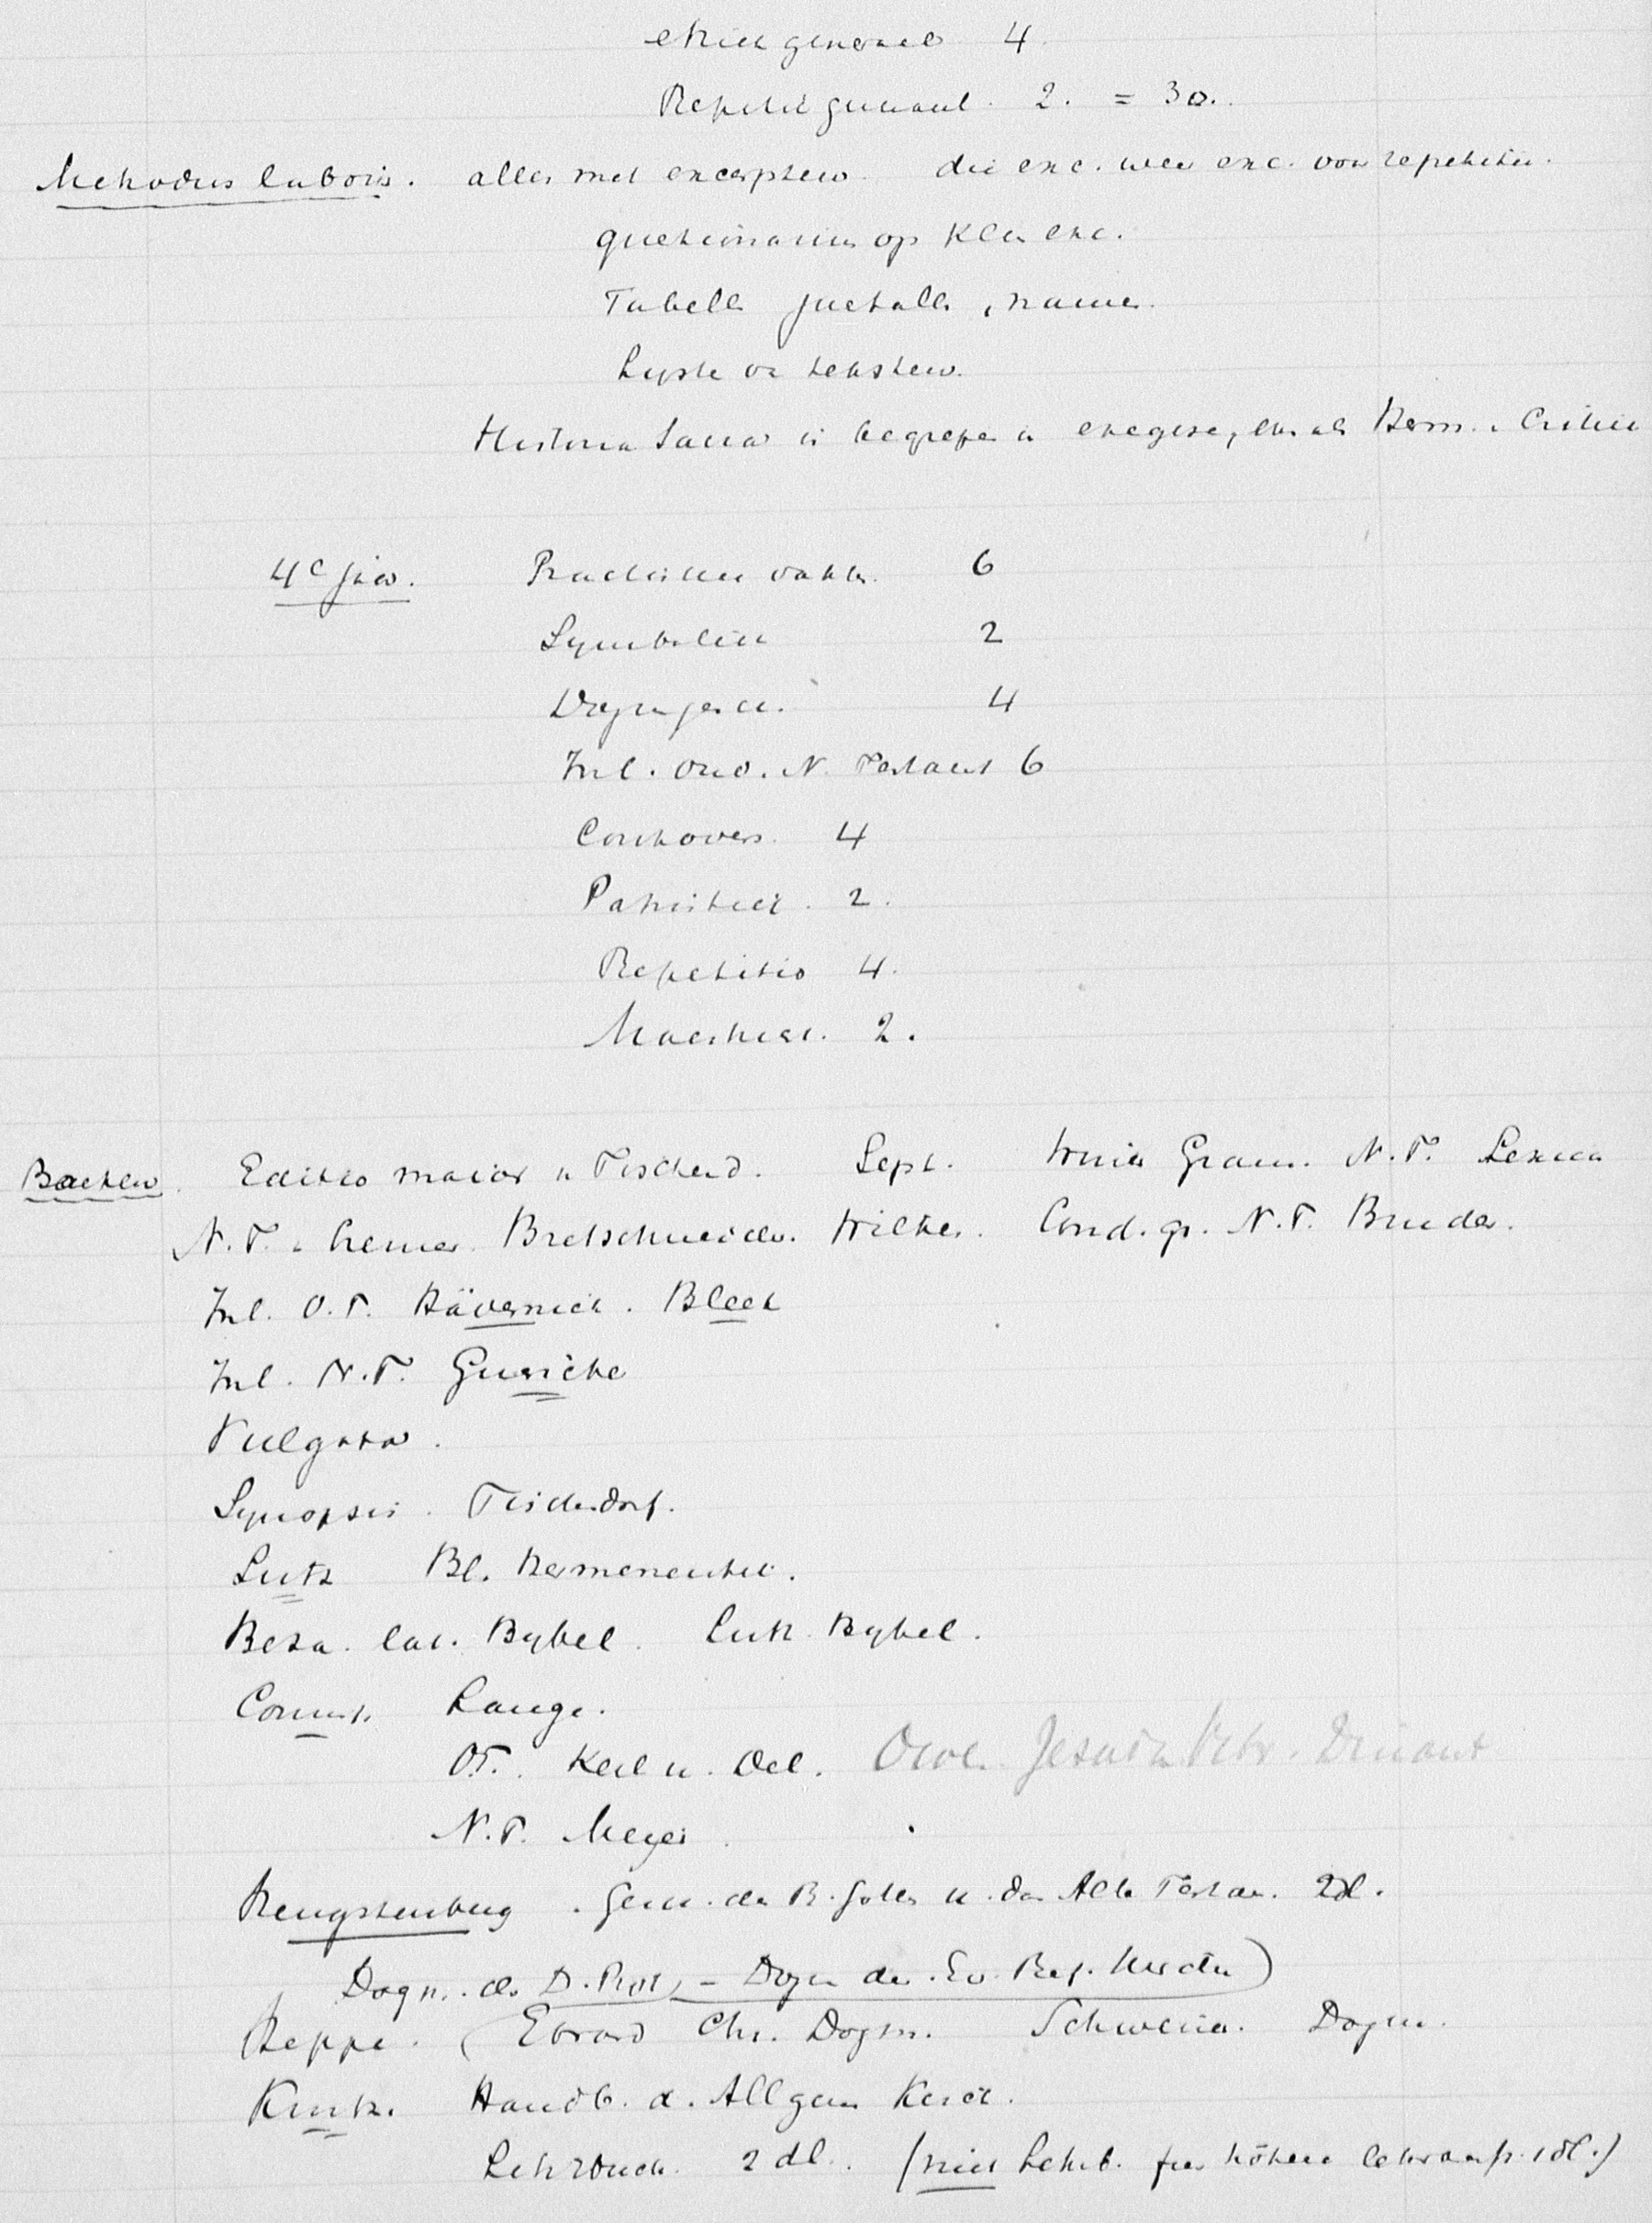 ethiek generael 4.
Repetit generael. 2. = 30.
Methodus laboris. alles met excerpten. die exc. weer exc. voor repetitie.
questionarium op klein exc.
Tabell jaetalle, namen.
Lyste van teksten.
Historia Sacra is begrepen in exegese, evenals Herm. Critiek
4e jaar. Practische vakke. 6
Symboliek 2
Dogmgesch. 4
Inl. Oud. N. Testament 6
Controvers. 4
Patristiek. 2.
Repetitio 4.
2.
Boeken. Editio maior v Tischend. Sept. Winer Gram. N.T. Lexica
N.T. v Cremer. Bretschneider. Wilke. Cond. gr. N.T. Bruder.
Inl. O.T. Hävernick. Bleek
Inl. N.T. Guericke
Vulgata.
Synopsis. Tischendorf.
Lutz Bl. Hermeneutik.
Beza. lat. Bybel. Luth. Bybel.
Comm. Lange.
O.T. Keil u. Del.
N.T. Meyer
Hengstenberg. Gesch. des R. Gottes u. der Alte Testam. 2dl.
Dogm. d. D. Prot. – Dogm der Ev. Ref. Kirche)
Heppe. (Ebrard Chr. Dogm. Schweiz. Dogm.
Kurtz. Handb. d. Allgem Kirch.
Lehrbuch. 2 dl. (niet Lehrb. fur höhere Lehranst. 1 dl.)